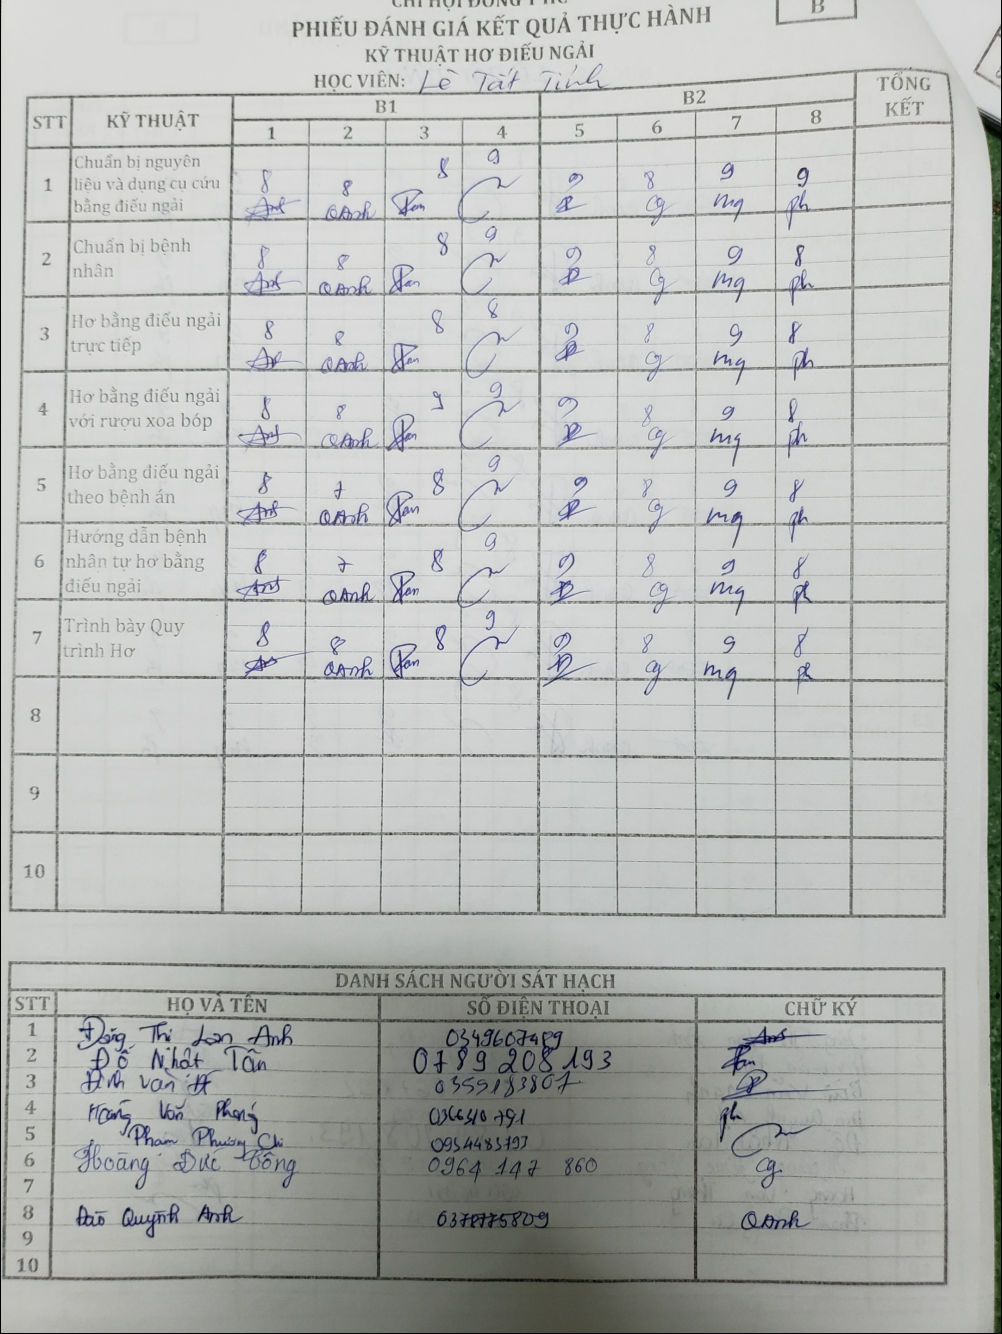 PHIẾU ĐÁNH GIÁ KẾT QUẢ THỰC HÀNH
B
KỸ THUẬT HƠ ĐIẾU NGẢI
HỌC VIÊN: Lê Tất Tính
STT KỸ THUẬT B1 B2 TỔNG KẾT
1 2 3 4 5 6 7 8
1 Chuẩn bị nguyên liệu và dụng cụ cứu bằng điếu ngải 8 8 8 9 9 8 9 9
Anh QAnh Tan cg mq ph
2 Chuẩn bị bệnh nhân 8 8 8 9 9 8 9 8
Anh QAnh Tan cg mq ph
3 Hơ bằng điếu ngải trực tiếp 8 8 8 8 9 8 9 8
QAnh Tan cg mq ph
4 Hơ bằng điếu ngải với rượu xoa bóp 8 8 9 9 9 8 9 8
Anh QAnh Tan cg mq ph
5 Hơ bằng điếu ngải theo bệnh án 8 7 8 9 9 8 9 8
Anh QAnh Tan cg mq ph
6 Hướng dẫn bệnh nhân tự hơ bằng điếu ngải 8 7 8 9 9 8 9 8
Anh QAnh Tan cg mq ph
7 Trình bày Quy trình Hơ 8 8 8 9 9 8 9 8
QAnh Tan cg mq ph
8
9
10
DANH SÁCH NGƯỜI SÁT HẠCH
STT HỌ VÀ TÊN SỐ ĐIỆN THOẠI CHỮ KÝ
1 Đặng Thị Lan Anh 0349607489 Anh
2 Đỗ Nhật Tân 0789 208 193 Tan
3 Đinh Văn 0359183807
4 Hoàng Văn Phong ph
5 Phạm Phương Chi 0934483793
6 Hoàng Đức Công 0964 147 860 cg
7
8 Đào Quỳnh Anh QAnh
9
10